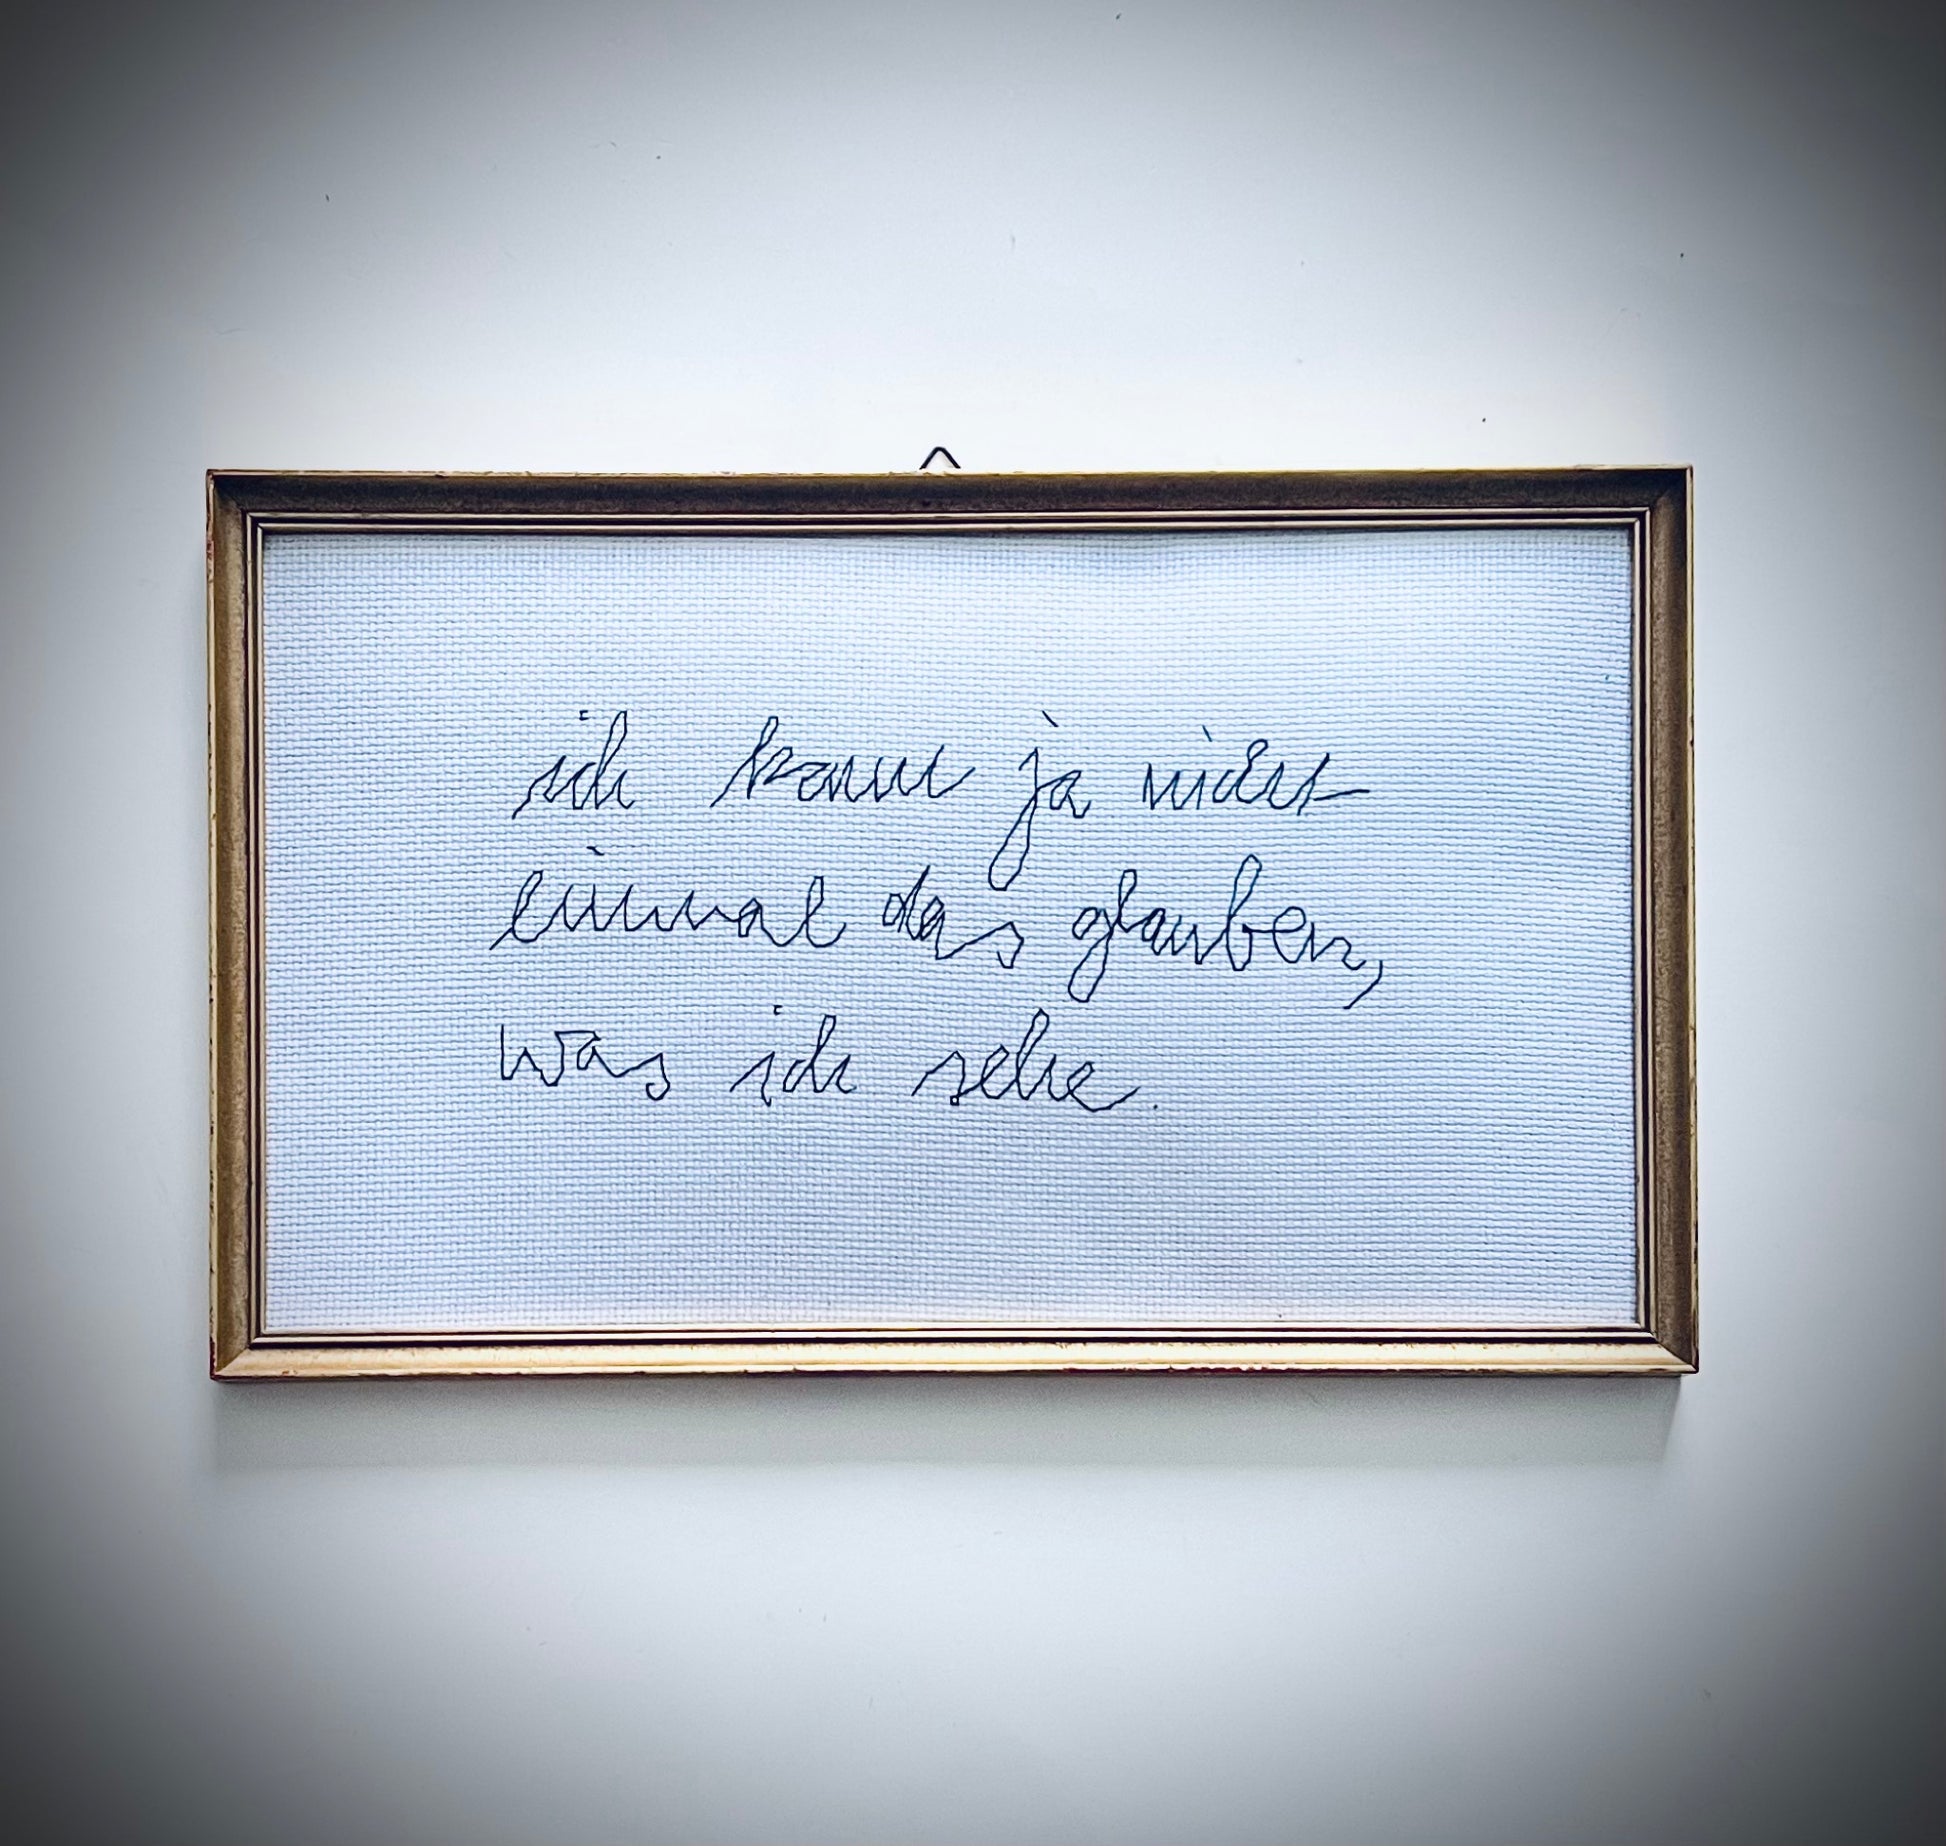 ich kann ja nicht
einmal das glauben,
was ich sehe.